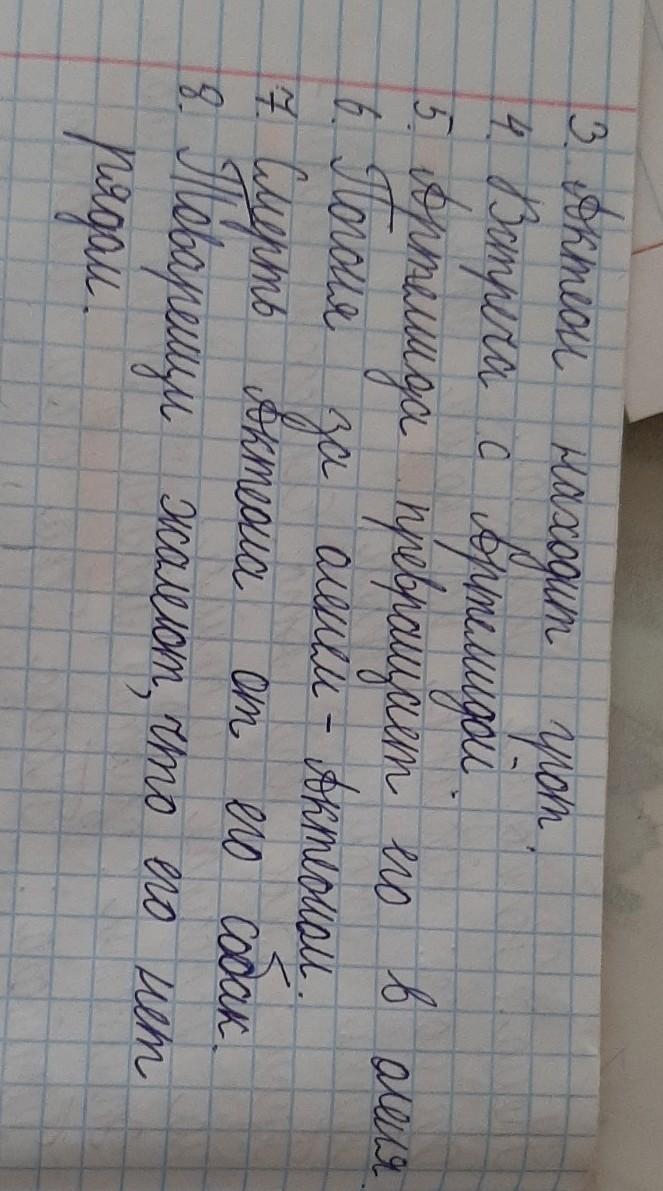 3. Актеон находит грот.
4. Встреча с Артемидой.
5. Артемида превращает его в оленя.
6. Погоня за оленем - Актеоном.
7. Смерть Актеона от его собак.
8. Товарищи жалеют, что его нет
рядом.